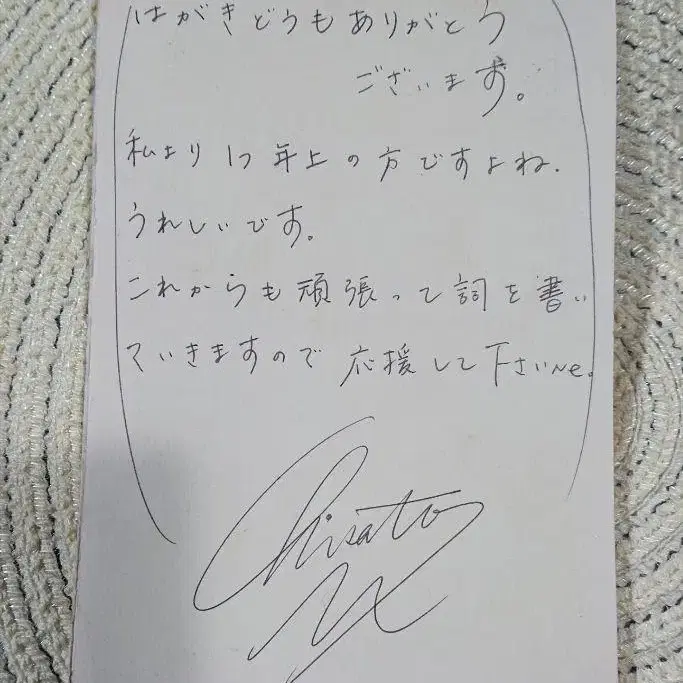 はがきどうもありがとう
ございます。
私より17年上の方ですよね.
うれしいです。
これからも頑張って詞を書い
ていきますので応援して下さいne。
Chisato
M